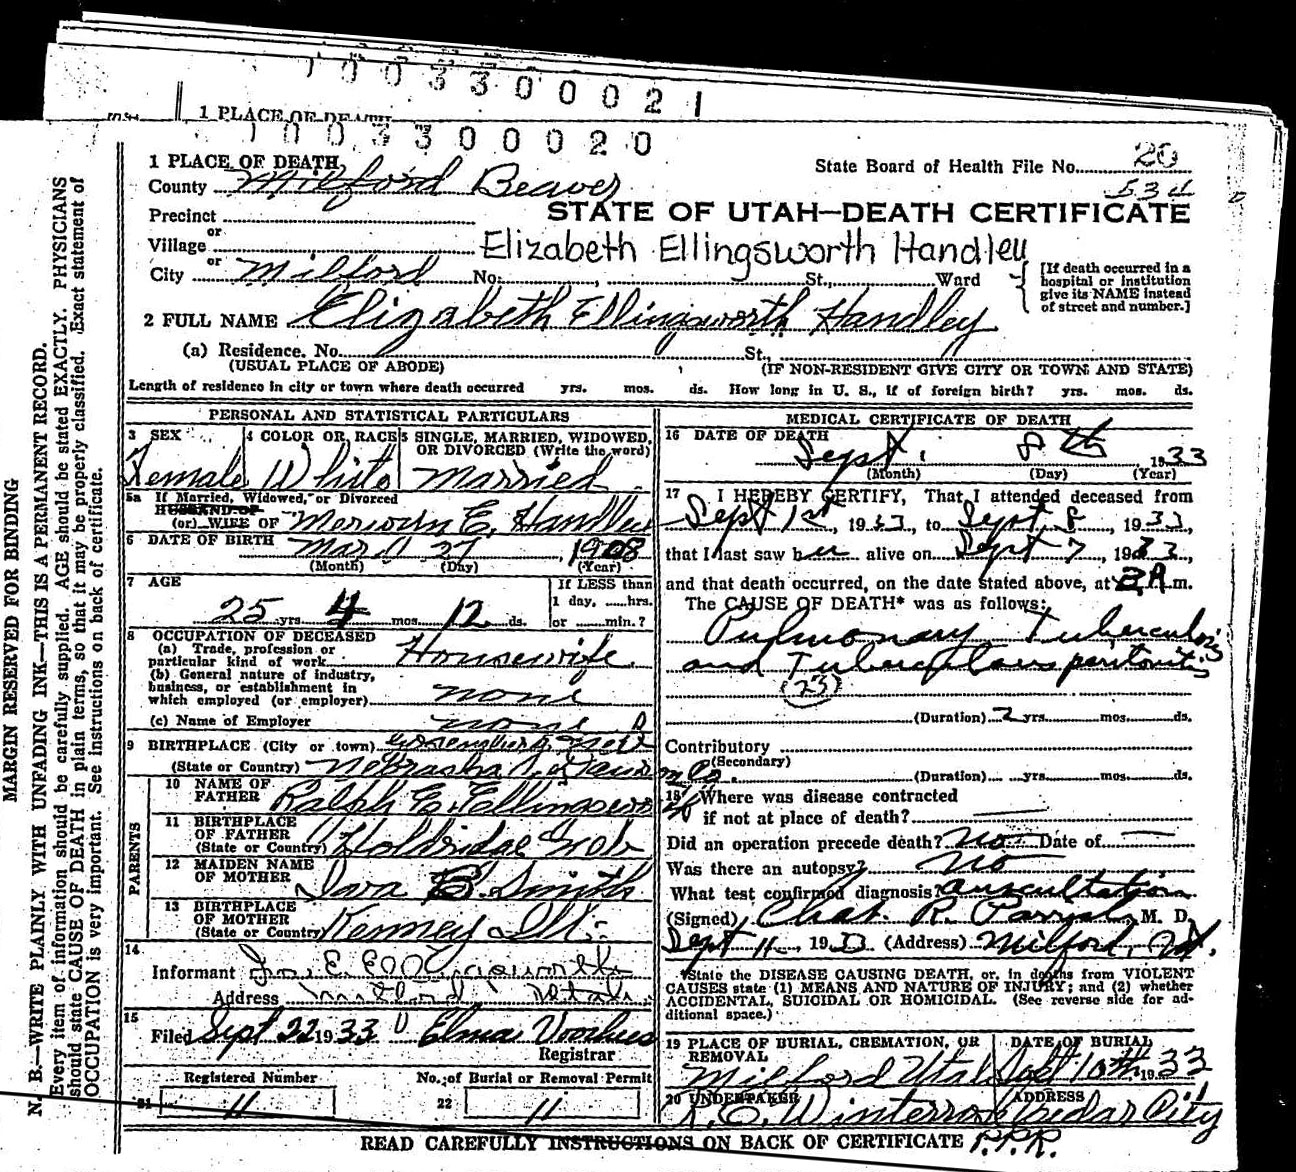 1003300021
1 PLACE OF DEATH
1003300020
1 PLACE OF DEATH
State Board of Health File No. 20
County Milford Beaver
534
Precinct
STATE OF UTAH—DEATH CERTIFICATE
or
Village
Elizabeth Ellingsworth Handley
or
City Milford No. , St., Ward
[If death occurred in a hospital or institution give its NAME instead of street and number.]
2 FULL NAME Elizabeth Ellingsworth Handley
(a) Residence. No. St.,
(USUAL PLACE OF ABODE) (IF NON-RESIDENT GIVE CITY OR TOWN AND STATE)
Length of residence in city or town where death occurred yrs. mos. ds. How long in U. S., if of foreign birth? yrs. mos. ds.
PERSONAL AND STATISTICAL PARTICULARS
3 SEX 4 COLOR OR RACE 5 SINGLE, MARRIED, WIDOWED, OR DIVORCED (Write the word)
Female White Married
5a If Married, Widowed, or Divorced
HUSBAND OF
(or) WIFE OF E. Handley
6 DATE OF BIRTH March 27 1908
(Month) (Day) (Year)
7 AGE If LESS than
25 yrs 4 mos. 12 ds. 1 day, ......hrs.
or ......min.?
8 OCCUPATION OF DECEASED
(a) Trade, profession or particular kind of work Housewife
(b) General nature of industry, business, or establishment in which employed (or employer) none
(c) Name of Employer none
9 BIRTHPLACE (City or town)
(State or Country) Nebraska
PARENTS
10 NAME OF FATHER Ralph E. Ellingswo
11 BIRTHPLACE OF FATHER (State or Country) Holdridge
12 MAIDEN NAME OF MOTHER B. Smith
13 BIRTHPLACE OF MOTHER (State or Country) Kenney Ill.
14
Informant E. Ellingsworth
Address Milford Utah
15
Filed Sept 22 1933 Elma Voorhees
Registrar
Registered Number No. of Burial or Removal Permit
21 11 22 11
MEDICAL CERTIFICATE OF DEATH
16 DATE OF DEATH
Sept. 8th 1933
(Month) (Day) (Year)
17 I HEREBY CERTIFY, That I attended deceased from
Sept 1st, 1933, to Sept. 8, 1933,
that I last saw her alive on Sept 7, 1933,
and that death occurred, on the date stated above, at A.m.
The CAUSE OF DEATH* was as follows:
Pulmonary Tuberculosis
and Tuberculous peritonitis
(23)
(Duration) 2 yrs. mos. ds.
Contributory
(Secondary)
(Duration) yrs. mos. ds.
18 Where was disease contracted
if not at place of death?
Did an operation precede death? no Date of
Was there an autopsy? no
What test confirmed diagnosis? auscultation
(Signed) Chas. R. Parrish, M. D.
Sept 11, 1933 (Address) Milford, Ut.
*State the DISEASE CAUSING DEATH, or, in deaths from VIOLENT
CAUSES state (1) MEANS AND NATURE OF INJURY; and (2) whether
ACCIDENTAL, SUICIDAL OR HOMICIDAL. (See reverse side for additional space.)
19 PLACE OF BURIAL, CREMATION, OR REMOVAL DATE OF BURIAL
Milford Utah Sept 10th, 1933
20 UNDERTAKER ADDRESS
Cedar City
READ CAREFULLY INSTRUCTIONS ON BACK OF CERTIFICATE P.P.R.
MARGIN RESERVED FOR BINDING
N. B.—WRITE PLAINLY WITH UNFADING INK—THIS IS A PERMANENT RECORD.
Every item of information should be carefully supplied. AGE should be stated EXACTLY. PHYSICIANS
should state CAUSE OF DEATH in plain terms, so that it may be properly classified. Exact statement of
OCCUPATION is very important. See Instructions on back of certificate.